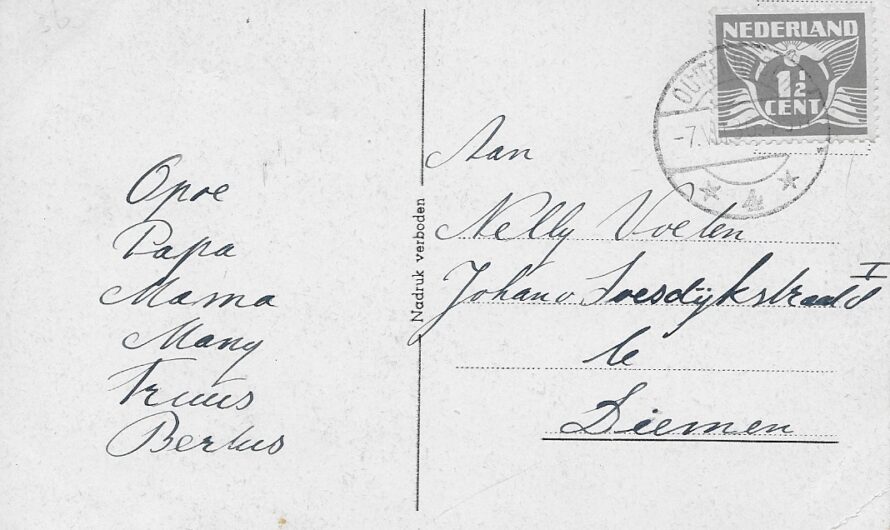 Opoe
Papa
Mama
Many
Truus
Bertus
Nadruk verboden
NEDERLAND
1½
CENT
OU
-7.V
4
Aan
Nelly Voeten
Johan v Soesdijkstraat
I
te
Diemen